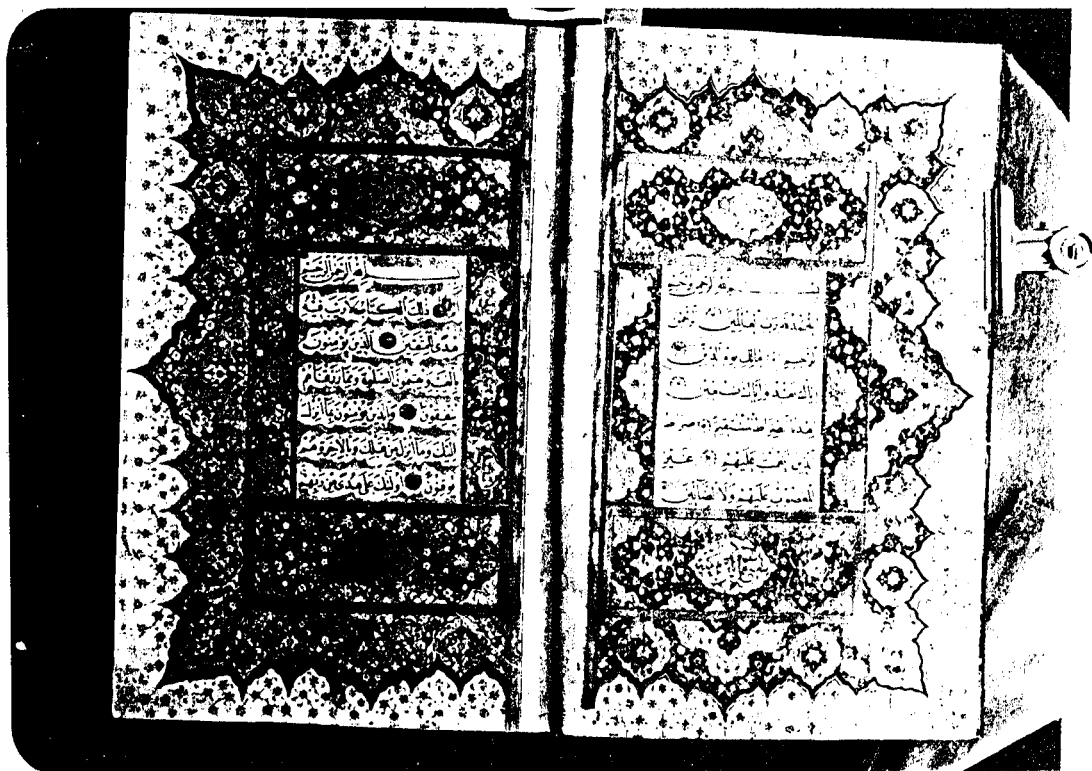 بسم الله الرحمن الرحيم
الحمد لله رب العالمين الرحمن
الرحيم ملك يوم الدين
اياك نعبد واياك نستعين
اهدنا الصراط المستقيم صراط
الذين انعمت عليهم غير
المغضوب عليهم ولا الضالين
بسم الله الرحمن الرحيم
الم ذلك الكتاب لا ريب
فيه هدى للمتقين الذين يؤمنون
بالغيب ويقيمون الصلوة ومما رزقناهم
ينفقون والذين يؤمنون بما انزل
اليك وما انزل من قبلك وبالاخرة هم
يوقنون اولئك على هدى من ربهم